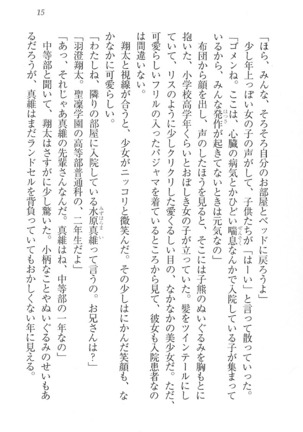 15
「ほら、みんな、そろそろ自分のお部屋とベッドに戻ろうよ」
少し年上っぽい女の子の声がして、子供たちが「はーい」と言って散っていった。
「ゴメンね。ここは、心臓の病気とかひどい喘息なんかで入院している子が集まって
いるから、みんな発作が起きてないときは元気なの」
布団から顔を出し、声のしたほうを見ると、そこには子熊のぬいぐるみを胸もとに
抱いた、小学校高学年くらいとおぼしき女の子が立っていた。髪をツインテールにし
ていて、リスのように少しクリクリした愛くるしい目の、なかなかの美少女だ。ただ、
可愛らしいフリルの入ったパジャマを着ているところから見て、彼女も入院患者なの
は間違いない。
翔太と視線が合うと、少女がニッコリと微笑んだ。その少しはにかんだ笑顔も、な
かなかに可愛らしい。
「わたしね、隣りの部屋に入院している水原真維って言うの。お兄さんは？」
「羽澄翔太。聖凜学園の高等部普通科の、二年生だよ」
「あっ、それじゃあ真維の先輩さんなんだ。真維はね、中等部の一年なの」
中等部と聞いて、翔太はさすがに少し驚いた。小柄なことやぬいぐるみのせいもあ
るだろうが、真維はまだランドセルを背負っていてもおかしくない年に見える。